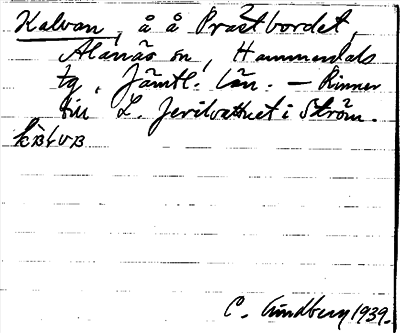 Kalvan, å å Prästbordet,
Alanäs sn, Hammerdals
tg, Jämtl. län. — Rinner
till L. Jerilvattnet i Ström.
C. Lindberg 1939.